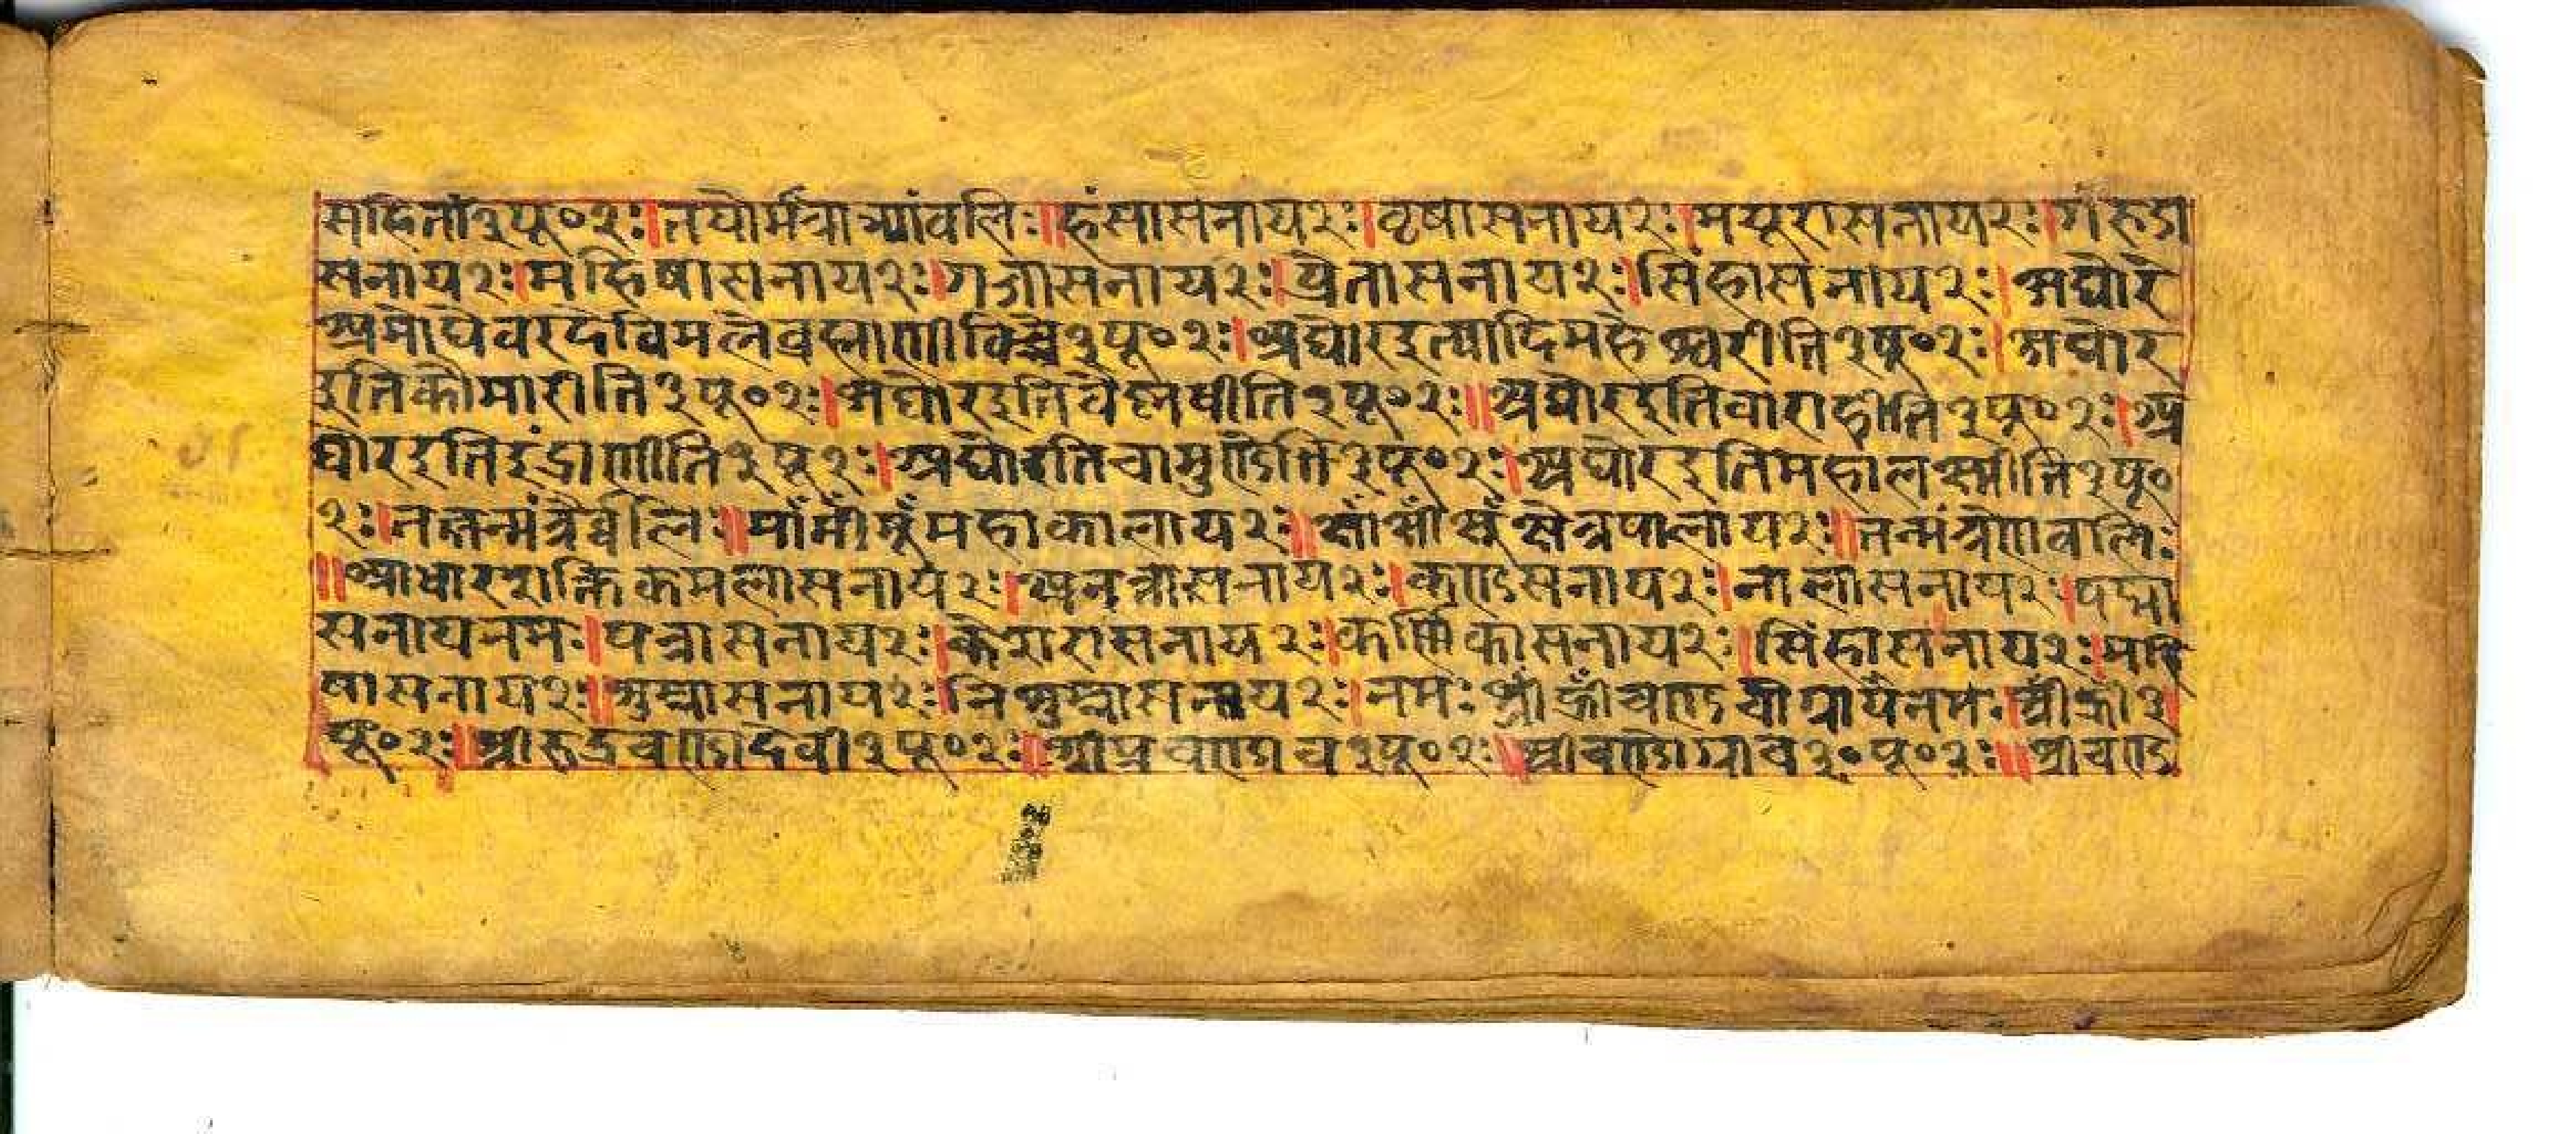 सहितां३पू०२ः।तयोर्मंत्राभ्यांवलिः॥हंसासनाय२ः।वृषासनाय२ः।मयूरासनाय२ः।गरुडा
सनाय२ः।महिषासनाय२ः।गजासनाय२ः।प्रेतासनाय२ः।सिंहासनाय२ः।अघोरे
अमोघेवरदेविमलेव्रह्माणीविच्चे३पू०२ः।अघोरइत्यादिमहेश्वरीति३पू०२ः।अघोर
इतिकौमारीति३पू०२ः।अघोरइतिवैष्नवीति३पू०२ः॥अघोरइतिवाराहीति३पू०२ः।अ
घोरइतिइंद्राणीति३पू२ः।अघोरतिचामुण्डेति३पू०२ः।अघोरइतिमहालक्ष्मीति३पू०
२ः।तत्तन्मंत्रैर्व्वलिः॥मांमींमूंमहाकालाय२ः॥क्षांक्षींक्षूंक्षेत्रपालाय२ः॥तन्मंत्रेणवलिः
॥आधारशक्तिकमलासनाय२ः।अनन्तासनाय२ः।कण्डासनाय२ः।नालासनाय२ः।पद्मा
सनायनमः।पत्रासनाय२ः।केशरासनाय२ः।कर्णिकासनाय२ः।सिंहासनाय२ः।महि
षासनाय२ः॥शुम्भासनाय२ः।निशुम्भासनाय२ः।नमः श्रीं ह्रींचण्डचोग्रायैनमः।श्रींह्रीं३
पू०२ः॥श्रीरुद्रचण्डादेवी३पू०२ः॥श्रीप्रचण्डाच३पू०२ः॥श्रीचण्डोग्राच३०पू०२ः॥श्रीचण्ड